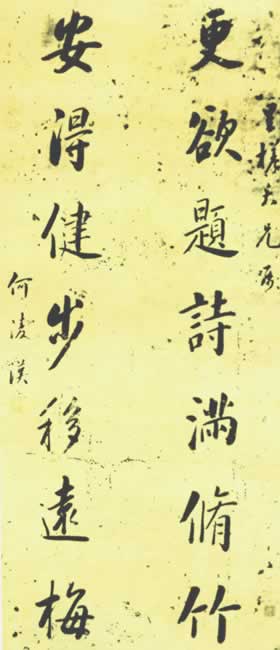 大兄屬
更欲題詩滿脩竹
安得健步移遠梅
何凌漢